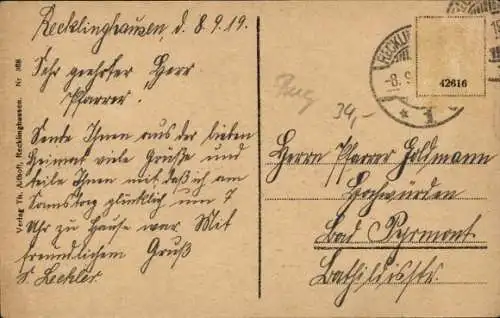 Recklinghausen, d. 8.9.19.
Sehr geehrter Herr
Pfarrer.
Sende Ihnen aus der lieben
Heimat viele Grüße und
teile Ihnen mit, daß ich am
Sonnstag glücklich um 7
Uhr zu Hause war. Mit
freundlichem Gruß
S. Leckler.
Verlag Th. Althoff, Recklinghausen. Nr
RECKLIN
-8. 9
42616
34,-
Herrn Pfarrer Goldmann
Hochwürden
Bad Pyrmont
Bathildisstr.